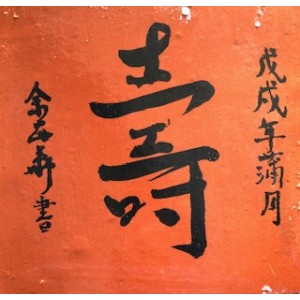 戊戌年蒲月
壽
余㐂華書